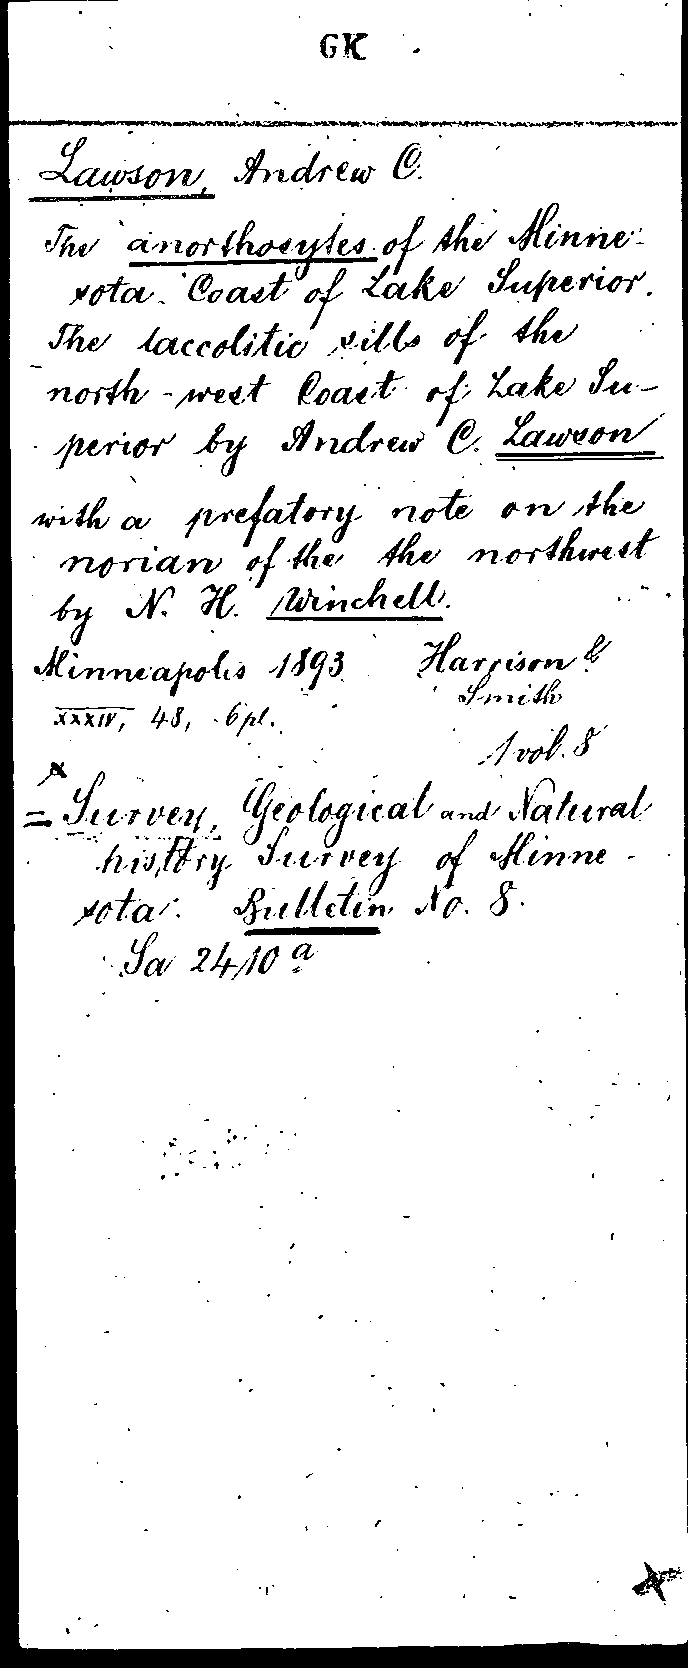 GK
Lawson, Andrew C.
The anorthosytes of the Minne-
sota Coast of Lake Superior.
The laccolitic sills of the
north-west Coast of Lake Su-
perior by Andrew C. Lawson
with a prefatory note on the
norian of the the northwest
by N. H. Winchell.
Minneapolis 1893 Harrison &
Smith
XXXIV, 48, 6 pl.
1 vol. 8
= Survey, Geological and Natural
history Survey of Minne-
sota. Bulletin No. 8.
Sa 24,10 a